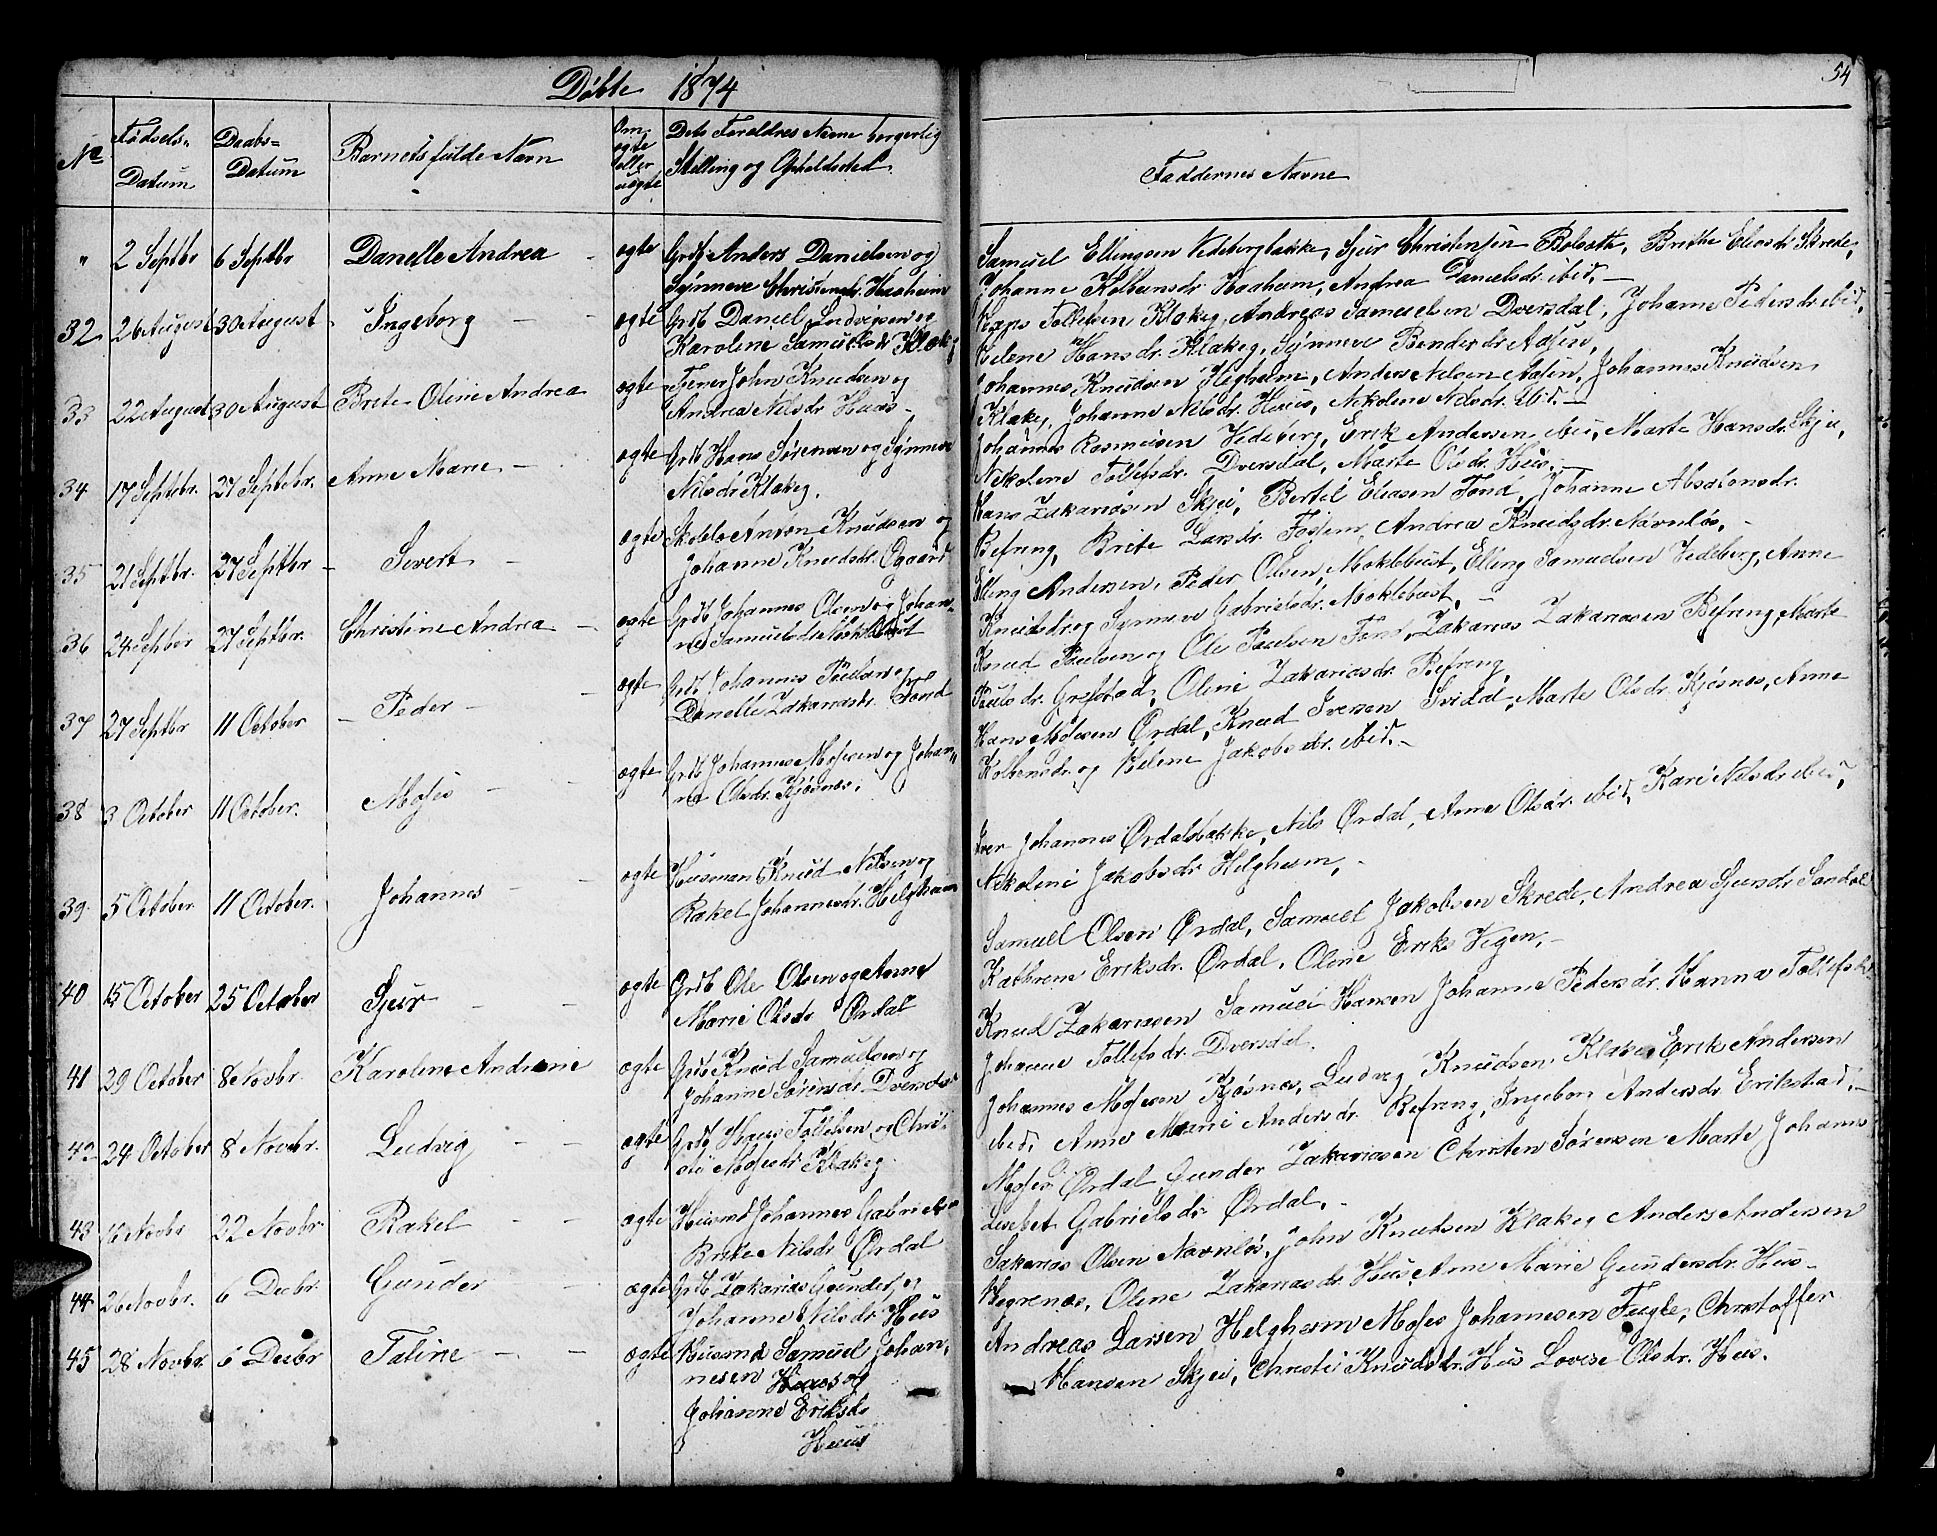 Döbte 1874
54
No
Födsels-
Datum
Daabs-
Datum
Barnets fulde Navn
Om
ægte
eller
uægte
Dets Foreldres Navne borgerlig
Stilling og Opholdsted.
Faddernes Navne
" 2 Septbr 6 Septbr Danelle Andrea - ægte Grdb Anders Danielsen og
Synneve Christensdr. Haaheim
Samuel Ellingsen Vedebergbakke, Sjur Christensen Bolsette, Brithe Eliasdr. Skrede,
Johanne Kolbensdr. Haaheim, Andrea Danielsdr. ibid. -
32 26 August 30 August - Ingeborg - - ægte Grdb Daniel Ludvigsen og
Karoline Samuelsdr Klakeg
Tollefsen Klakeg, Andreas Samuelsen Dversdal, Johanne Pedersdr. ibid,
Helene Hansdr. Klakeg, Synneve Bendiksdr.
33 22 August 30 August Brite Oline Andrea ægte Tjener John Knudsen og
Andrea Nilsdr Huus -
Johannes Knudsen Helgheim, Anders Nilsen Aasen, Johannes Knudsen
Klakeg, Johanne Nilsdr. Huus, Nikoline Nilsdr. ibid. -
34 17 Septebr. 27 Septebr. Anne Marie - ægte Grdb Hans Sörensen og Synneve
Nilsdr Klakeg.
Johannes Rasmusen Vedeberg, Erik Andersen ibid, Marte Hansdr. Skjei,
Nikoline Tollefsdr. Dversdal, Marte Olsdr. Huus. -
35 21 Septbr. 27 Septbr - Sivert - ægte Anton Knudsen og
Johanne Knudsdr. Ögaard
Hans Zakariasen Skjei, Bertil Eliasen Fond, Johanne Absalonsdr.
Befring, Brite Larsdr. Andrea Knudsdr. Navnlös, -
36 24 Septbr 27 Septbr. Christine Andrea - ægte Grdb Johannes Olsen og Johan-
ne Samuelsdr Moklebust
Elling Andersen, Peder Olsen, Moklebust, Elling Samuelsen Vedeberg, Anne
Knudsdr og Synneve Gabrielsdr. Moklebust, -
37 27 Septbr 11 October - Peder - - ægte Grdb Johannes Paulsen og
Danelle Zakariasdr. Fond
Knud Paulsen og Ole Paulsen Fond, Zakarias Zakariasen Befring, Marte
Paulsdr. Grefstad, Oline Zakariasdr. Befring,
38 3 October 11 October. Moses - - ægte Grdb Johannes Mosesen og Johan-
ne Olsdr. Kjösnes.
Hans Mosesen Ördal, Knud Iversen Svidal, Marte Olsdr. Kjösnes, Anne
Kolbensdr. og Helene Jakobsdr. ibid. -
39 5 October 11 October. Johannes - - ægte Husman Knud Nilsen og
Rakel Johannesdr. Helgheim
Iver Johannes Ördalsbakke, Nils Ördal, Anne Olsdr. ibid, Kari Nilsdr. ibid,
Nikoline Jakobsdr. Helgheim, -
40 15 October 25 October Sjur - - ægte Grdb Ole Olsen og Anne
Marie Olsdr Ördal
Samuel Olsen Ördal, Samuel Jakobsen Skrede, Andrea Sjursdr. Sandal
Kathrine Eriksdr. Ördal, Oline Eriks Vegen, -
41 29 October 8 Novbr. Karoline Andreane ægte Grdb Knud Samuelsen og
Johanne Sörensdr. Dversdal
Knud Zakariasen Samuel Hansen Johanne Pedersdr. Hanna Tollefsdr
Johanne Tollefsdr. Dversdal.
42 24 October 8 Novbr. Ludvig - - ægte Grdb Hans Tollefsen og Chri-
sti Mosesdr. Klakeg.
Johannes Mosesen Kjösnes, Ludvig Knudsen, Klakeg Erik Andersen
ibid, Anne Marie Andersdr Befring, Ingeborg Andersdr. Erikstad, -
43 16 Novbr 22 Novbr Rakel - - ægte Husmd Johannes Gabrielsen
Brite Nilsdr. Ördal
Moses Ördal Gunder Zakariasen Christen Sörensen Marte Johanns
Lisebet Gabrielsdr Ördal. -
44 26 Novbr. 6 Decbr. Gunder - ægte Grdb Zakarias Gunders. og
Johanne Nilsdr Huus
Sakarias Olsen Navnlös, John Knudsen Klakeg Anders Andersen
Oline Zakariasdr. Huus, Anne Marie Gundersdr. Hus -
45 28 Novbr. 6 Decbr Taline - - ægte Husmd Samuel Johan-
nesen Huus og
Johanne Eriksdr
Huus
Andreas Larsen Helgheim Moses Johannesen Fugle, Christoffer
Hansen Skjei, Christi Knudsdr. Hus Lovise Olsdr. Huus.